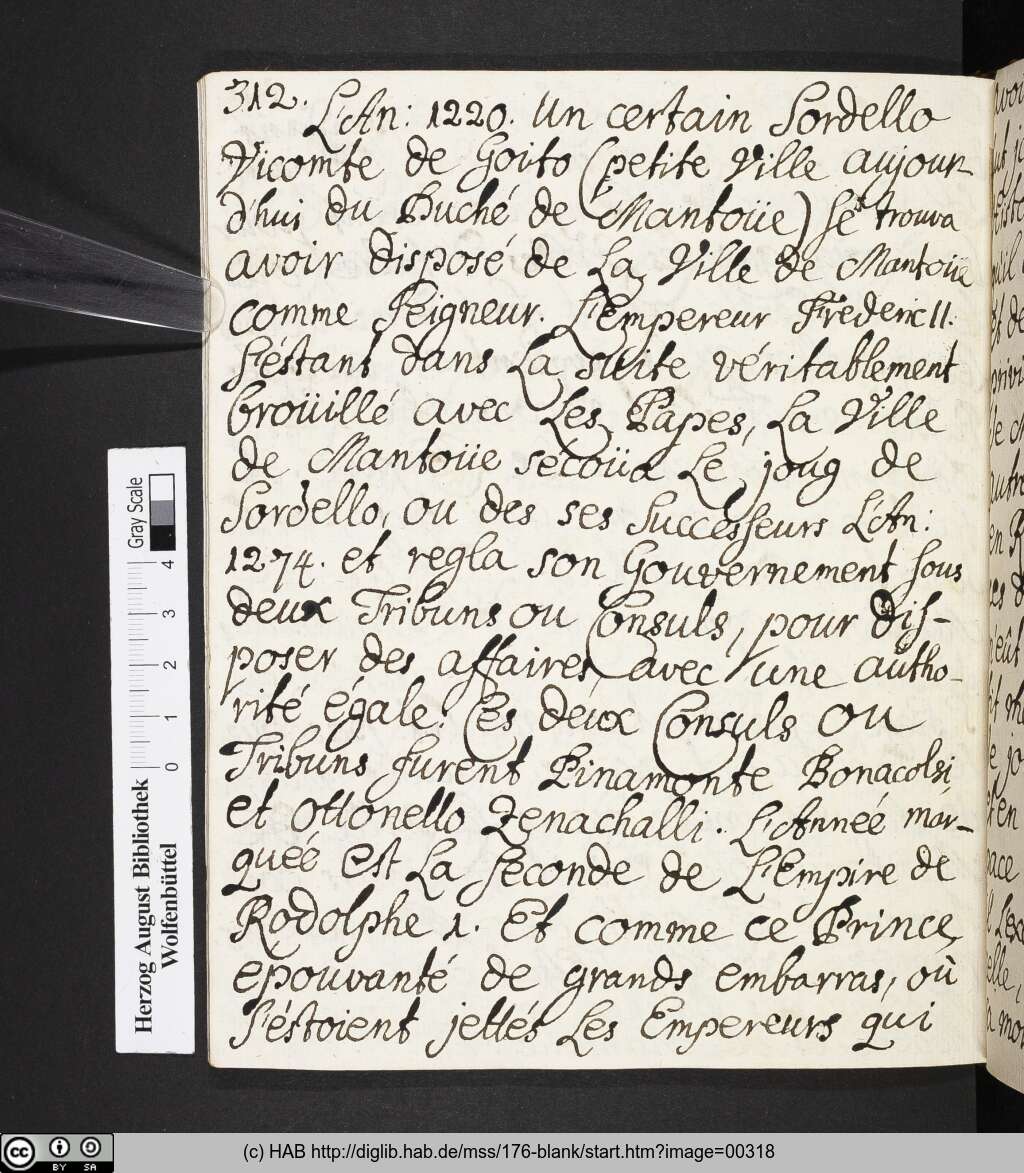 312.
L'An: 1220. Un certain Sordello
Vicomte de Goito (petite Ville aujour-
d'hui du Duché de Mantoüe) se trouva
avoir disposé de La Ville de Mantoüe
comme Seigneur. L'Empereur Frederic II.
s'éstant dans La suite véritablement
broüillé avec Les Papes, La Ville
de Mantoüe secoüa Le joug de
Sordello, ou des ses Successeurs L'An:
1274. et regla son Gouvernement sous
deux Tribuns ou Consuls, pour dis-
poser des affaires avec une autho-
rité égale. Ces deux Consuls ou
Tribuns furent Pinamonte Bonacolsi,
et Ottonello Zenachalli. L'Année mar-
quée est La seconde de L'Empire de
Rodolphe 1. Et comme ce Prince,
epouvanté de grands embarras, où
s'éstoient jettés Les Empereurs qui
Herzog August Bibliothek
Wolfenbüttel
Gray Scale
0 1 2 3 4
CC BY SA
(c) HAB http://diglib.hab.de/mss/176-blank/start.htm?image=00318